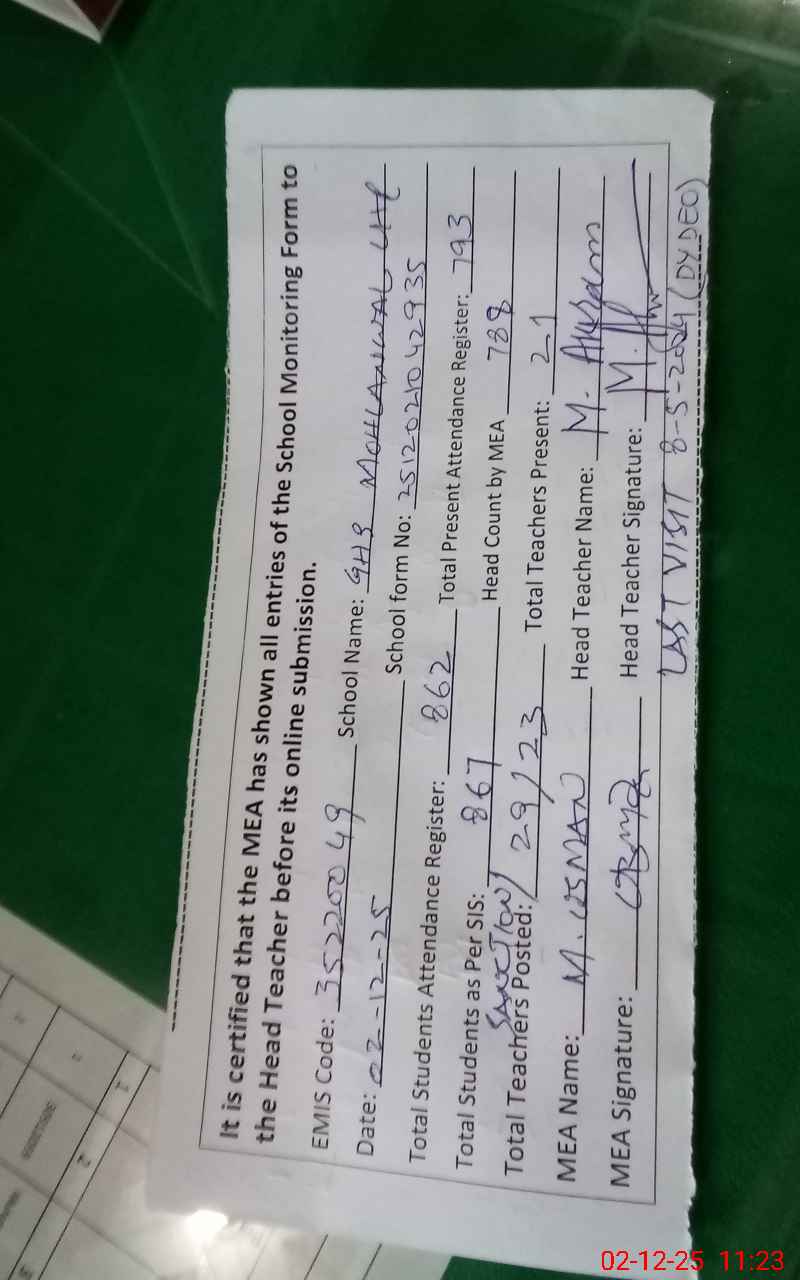 It is certified that the MEA has shown all entries of the School Monitoring Form to
the Head Teacher before its online submission.
EMIS Code: 35220049 School Name: GHS MOHLANWAL LHR
Date: 02-12-25 School form No: 2512021042935
Total Students Attendance Register: 862 Total Present Attendance Register: 793
Total Students as Per SIS: 867 Head Count by MEA 788
SANCTION/
Total Teachers Posted: 29/23 Total Teachers Present: 21
MEA Name: M. USMAN Head Teacher Name: M. Akram
MEA Signature: Head Teacher Signature:
LAST VISIT 8-5-2024 (DY DEO)
02-12-25 11:23